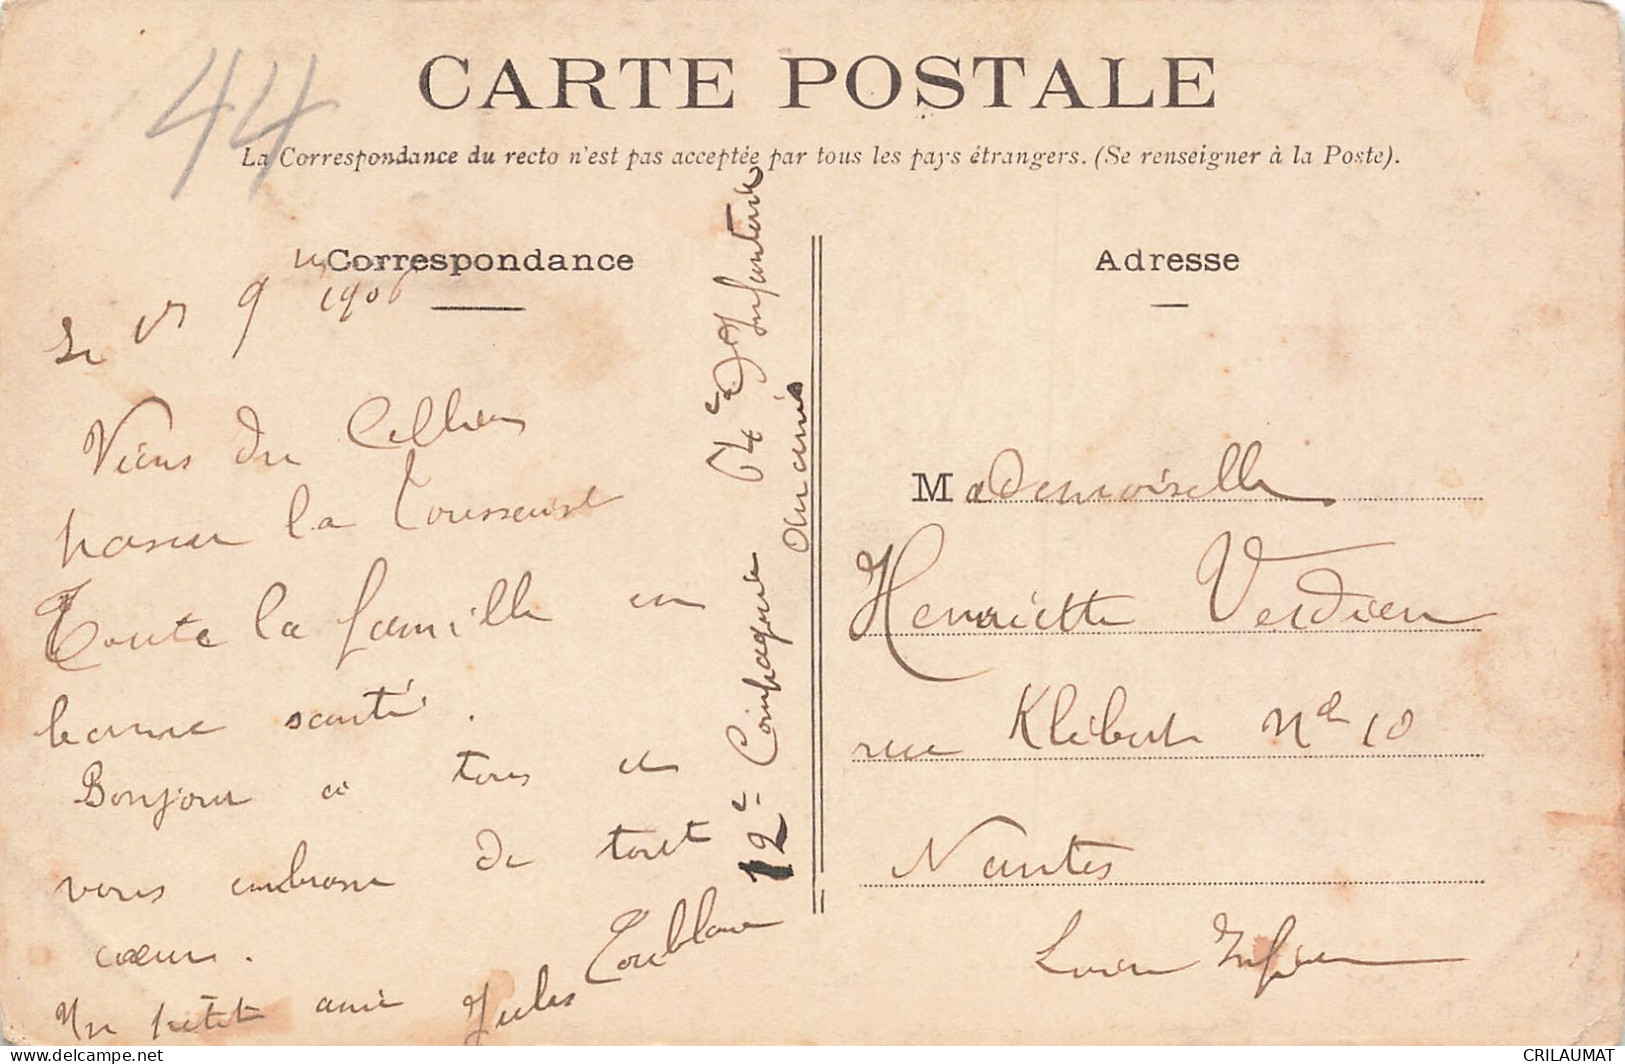 44
CARTE POSTALE
La Correspondance du recto n'est pas acceptée par tous les pays étrangers. (Se renseigner à la Poste).
Correspondance
Adresse
Le 9 1906
Viens du Cellier
passer la Toussaint
Toute la famille en
bonne santé.
Bonjour a tous et
vous embrasse de tout
cœur.
Un petit ami Jules Toublanc
12e Compagnie 64e D'Infanterie
Ancenis
Mademoiselle
Henriette Verdier
rue Kléber No 10
Nantes
Loire Infre
CRILAUMAT